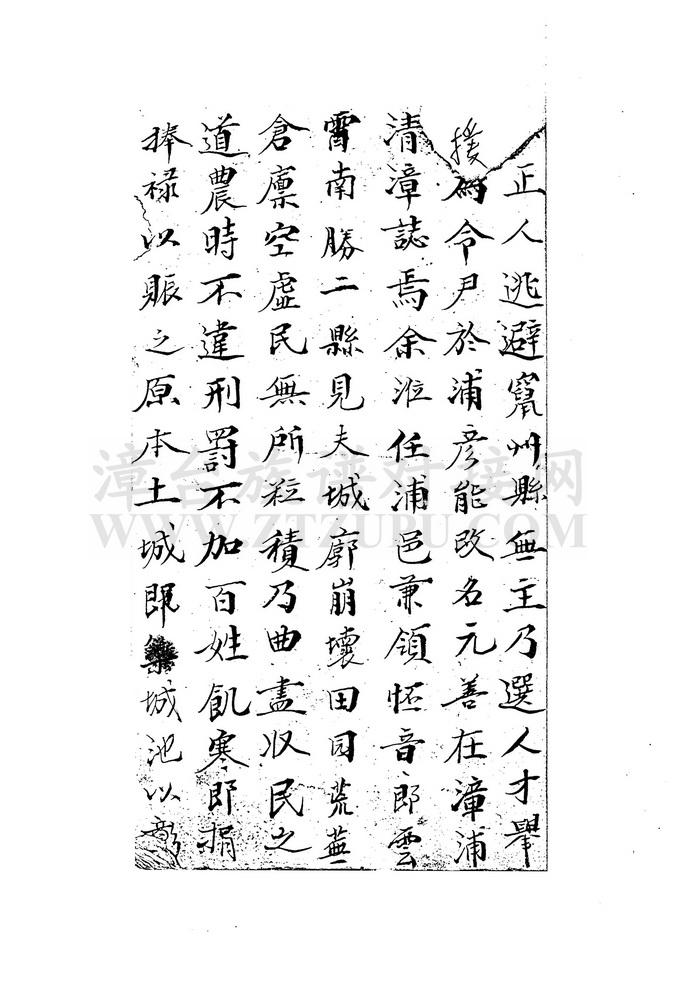 正人逃避竄州縣無主乃選人才舉
援為令尹於浦彦能改名元善在漳浦
清漳誌焉余涖任浦邑兼領怀音郎雲
霄南勝二縣見夫城廓崩壞田园荒蕪
倉廪空虛民無所粒積乃曲盡収民之
道農時不違刑罸不加百姓飢寒即捐
捧禄以賑之原本土城即築城池以
漳台族谱对接网
WWW.ZTZUPU.COM